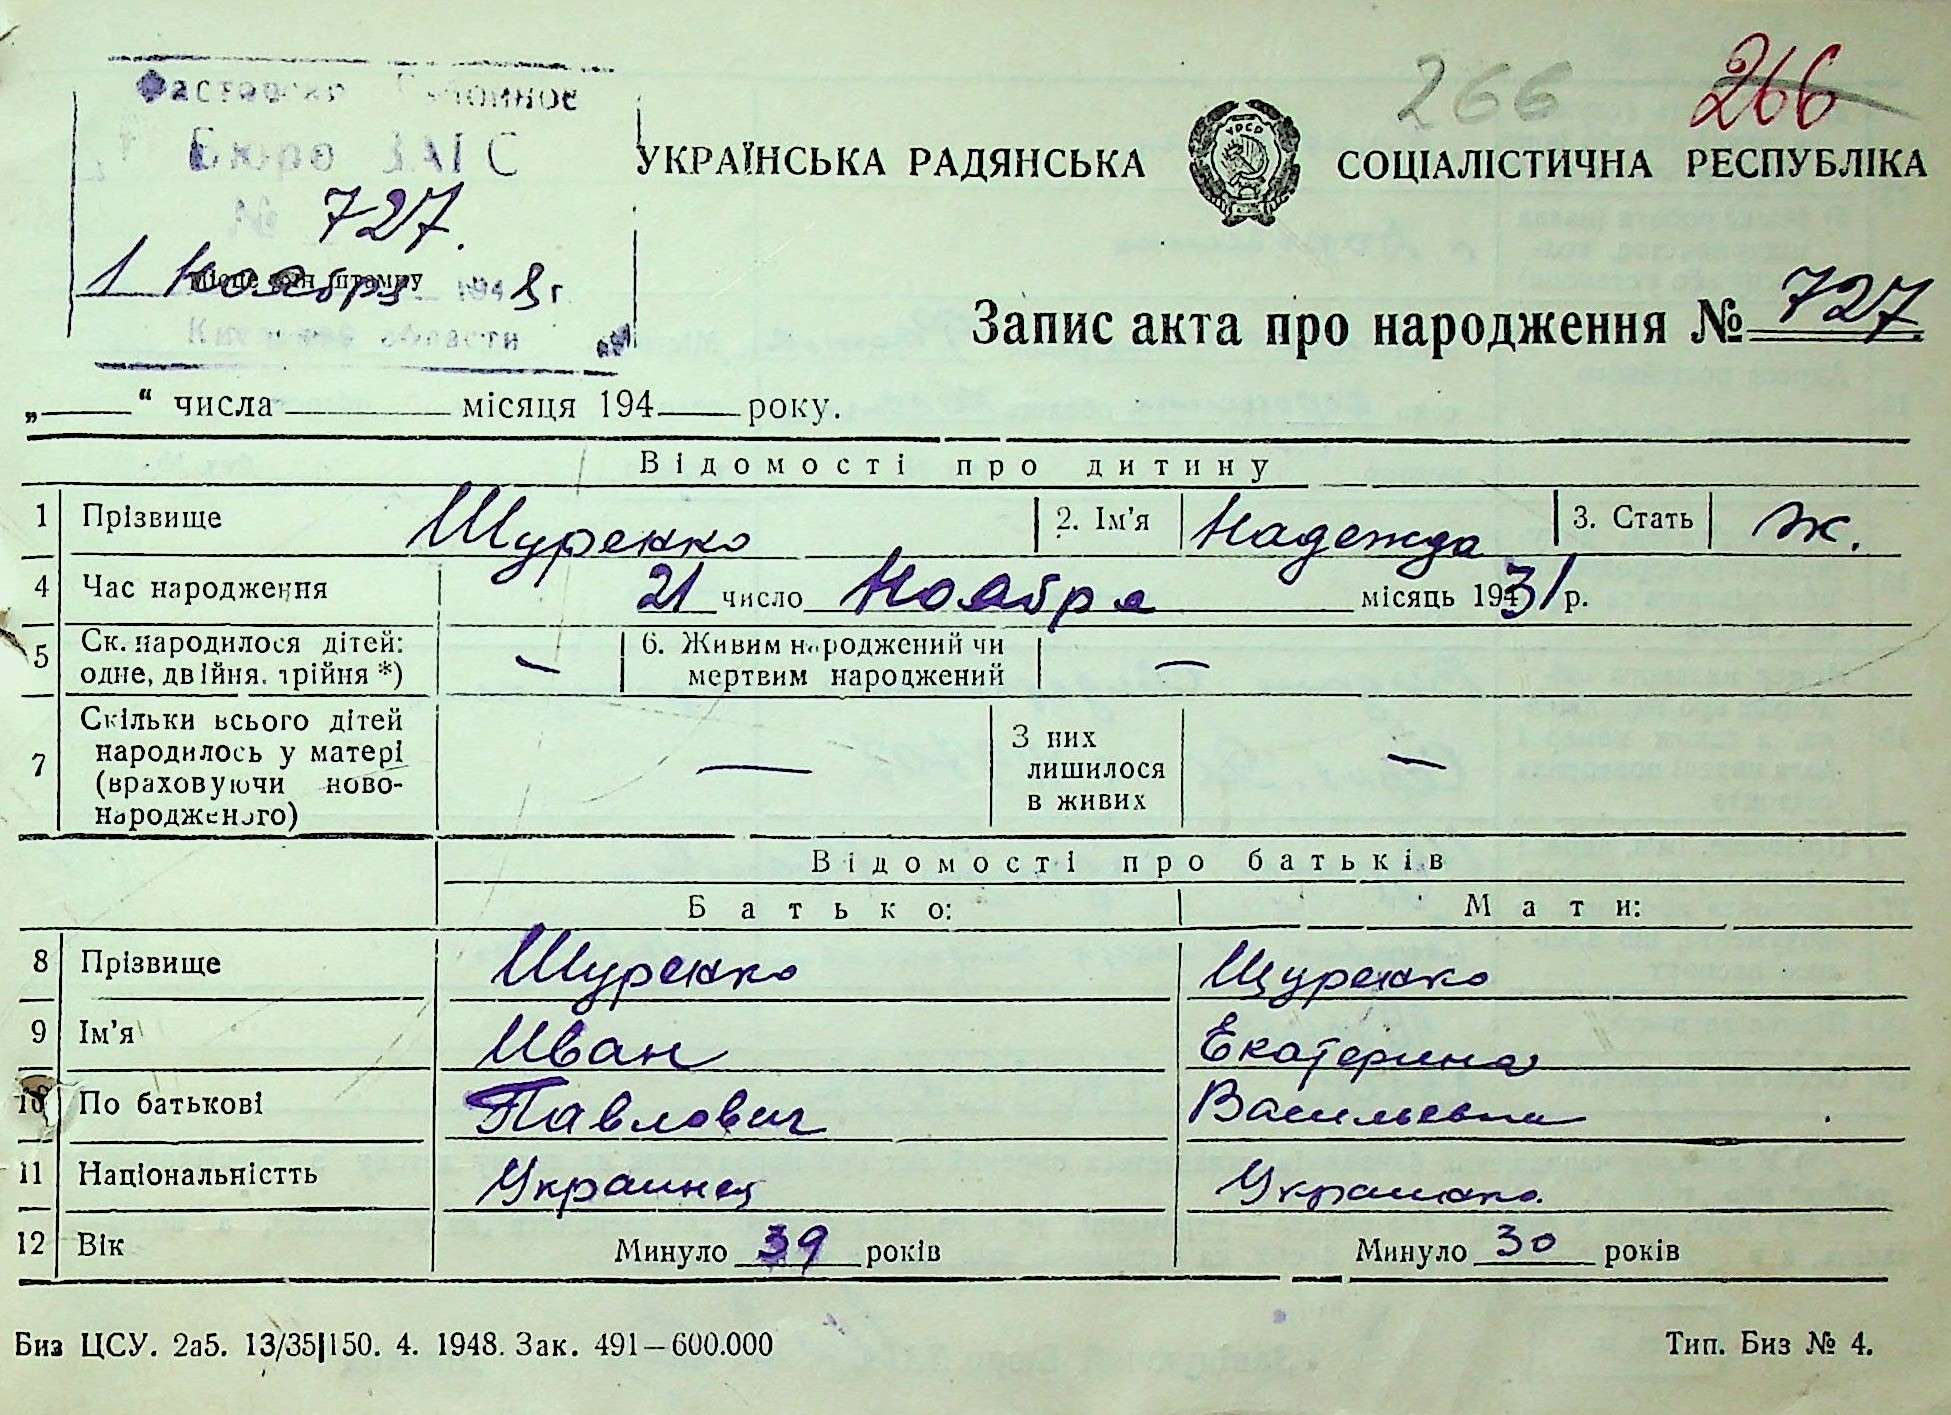 266 266
Бюро ЗАГС
727.
УКРАЇНСЬКА РАДЯНСЬКА СОЦІАЛІСТИЧНА РЕСПУБЛІКА
УРСР
місце для штампу
1 Ноября 194 г.
Киевской области
Запис акта про народження № 727
„____“ числа ____ місяця 194____ року.
Відомості про дитину
1 Прізвище Щуренко 2. Ім'я Надежда 3. Стать ж.
4 Час народження 21 число Ноября місяць 1931 р.
5 Ск. народилося дітей: одне, двійня, трійня *) — 6. Живим народжений чи мертвим народжений —
7 Скільки всього дітей народилось у матері (враховуючи ново-народженого) — З них лишилося в живих —
Відомості про батьків
Батько: Мати:
8 Прізвище Щуренко Щуренко
9 Ім'я Иван Екатерина
10 По батькові Павлович Васильевна
11 Національністть Украинец Украинка.
12 Вік Минуло 39 років Минуло 30 років
Биз ЦСУ. 2а5. 13/35|150. 4. 1948. Зак. 491—600.000 Тип. Биз № 4.